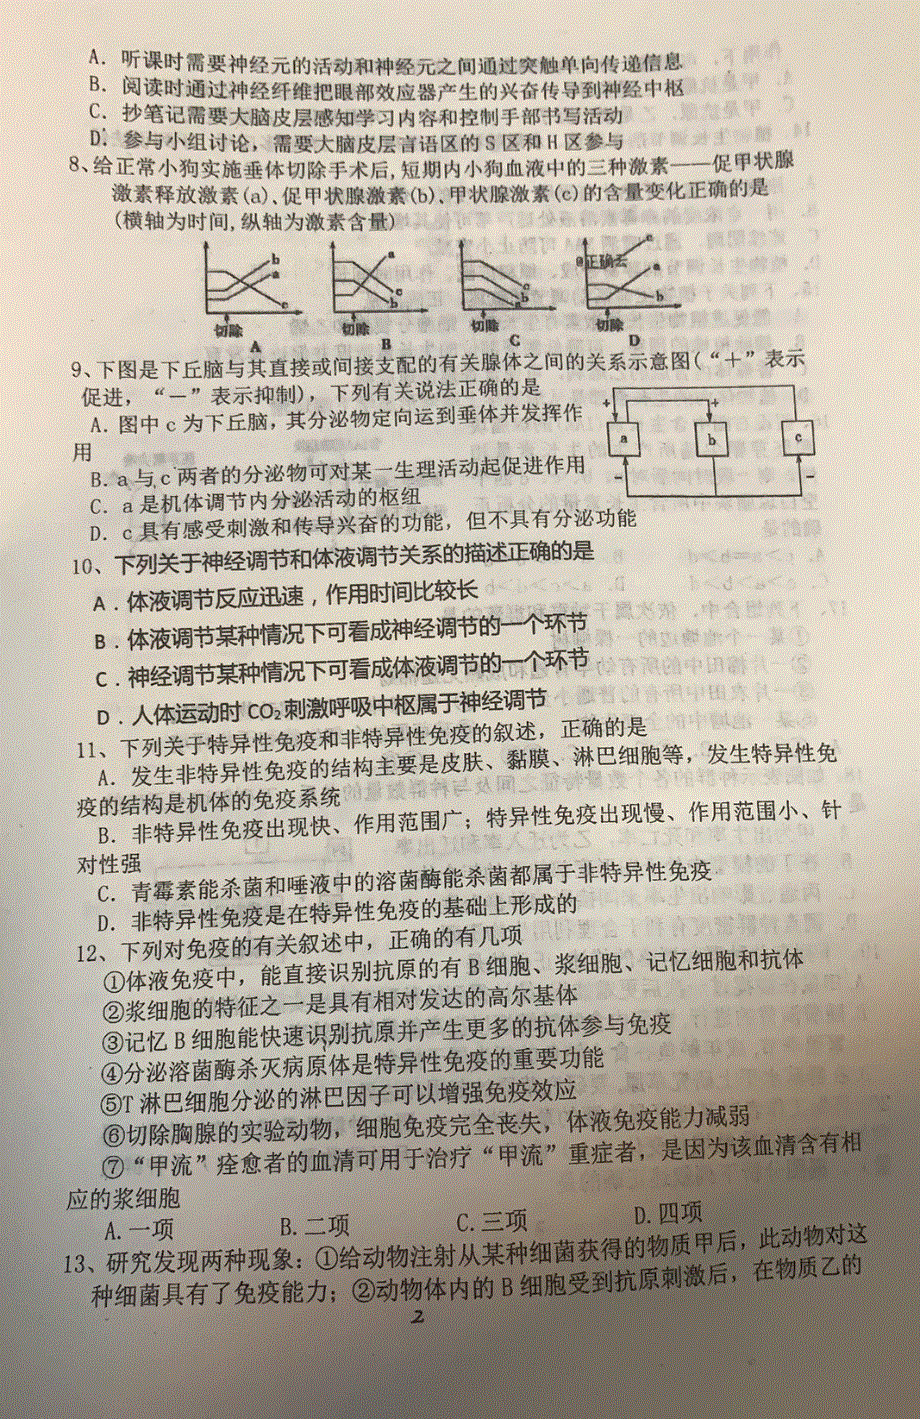 A．听课时需要神经元的活动和神经元之间通过突触单向传递信息
B．阅读时通过神经纤维把眼部效应器产生的兴奋传导到神经中枢
C．抄笔记需要大脑皮层感知学习内容和控制手部书写活动
D．参与小组讨论，需要大脑皮层言语区的S区和H区参与
8、给正常小狗实施垂体切除手术后,短期内小狗血液中的三种激素——促甲状腺
激素释放激素(a)、促甲状腺激素(b)、甲状腺激素(c)的含量变化正确的是
(横轴为时间,纵轴为激素含量)
b a c 切除 A
a c b 切除 B
a c b 切除 C
c 正确去 a b 切除 D
9、下图是下丘脑与其直接或间接支配的有关腺体之间的关系示意图(“＋”表示
促进，“－”表示抑制)，下列有关说法正确的是
A．图中c为下丘脑，其分泌物定向运到垂体并发挥作
用
B．a与c两者的分泌物可对某一生理活动起促进作用
C．a是机体调节内分泌活动的枢纽
D．c具有感受刺激和传导兴奋的功能，但不具有分泌功能
+ a b c － －
10、下列关于神经调节和体液调节关系的描述正确的是
A．体液调节反应迅速，作用时间比较长
B．体液调节某种情况下可看成神经调节的一个环节
C．神经调节某种情况下可看成体液调节的一个环节
D．人体运动时CO₂刺激呼吸中枢属于神经调节
11、下列关于特异性免疫和非特异性免疫的叙述，正确的是
A．发生非特异性免疫的结构主要是皮肤、黏膜、淋巴细胞等，发生特异性免
疫的结构是机体的免疫系统
B．非特异性免疫出现快、作用范围广；特异性免疫出现慢、作用范围小、针
对性强
C．青霉素能杀菌和唾液中的溶菌酶能杀菌都属于非特异性免疫
D．非特异性免疫是在特异性免疫的基础上形成的
12、下列对免疫的有关叙述中，正确的有几项
①体液免疫中，能直接识别抗原的有B细胞、浆细胞、记忆细胞和抗体
②浆细胞的特征之一是具有相对发达的高尔基体
③记忆B细胞能快速识别抗原并产生更多的抗体参与免疫
④分泌溶菌酶杀灭病原体是特异性免疫的重要功能
⑤T淋巴细胞分泌的淋巴因子可以增强免疫效应
⑥切除胸腺的实验动物，细胞免疫完全丧失，体液免疫能力减弱
⑦“甲流”痊愈者的血清可用于治疗“甲流”重症者，是因为该血清含有相
应的浆细胞
A.一项 B.二项 C.三项 D.四项
13、研究发现两种现象：①给动物注射从某种细菌获得的物质甲后，此动物对这
种细菌具有了免疫能力；②动物体内的B细胞受到抗原刺激后，在物质乙的
2